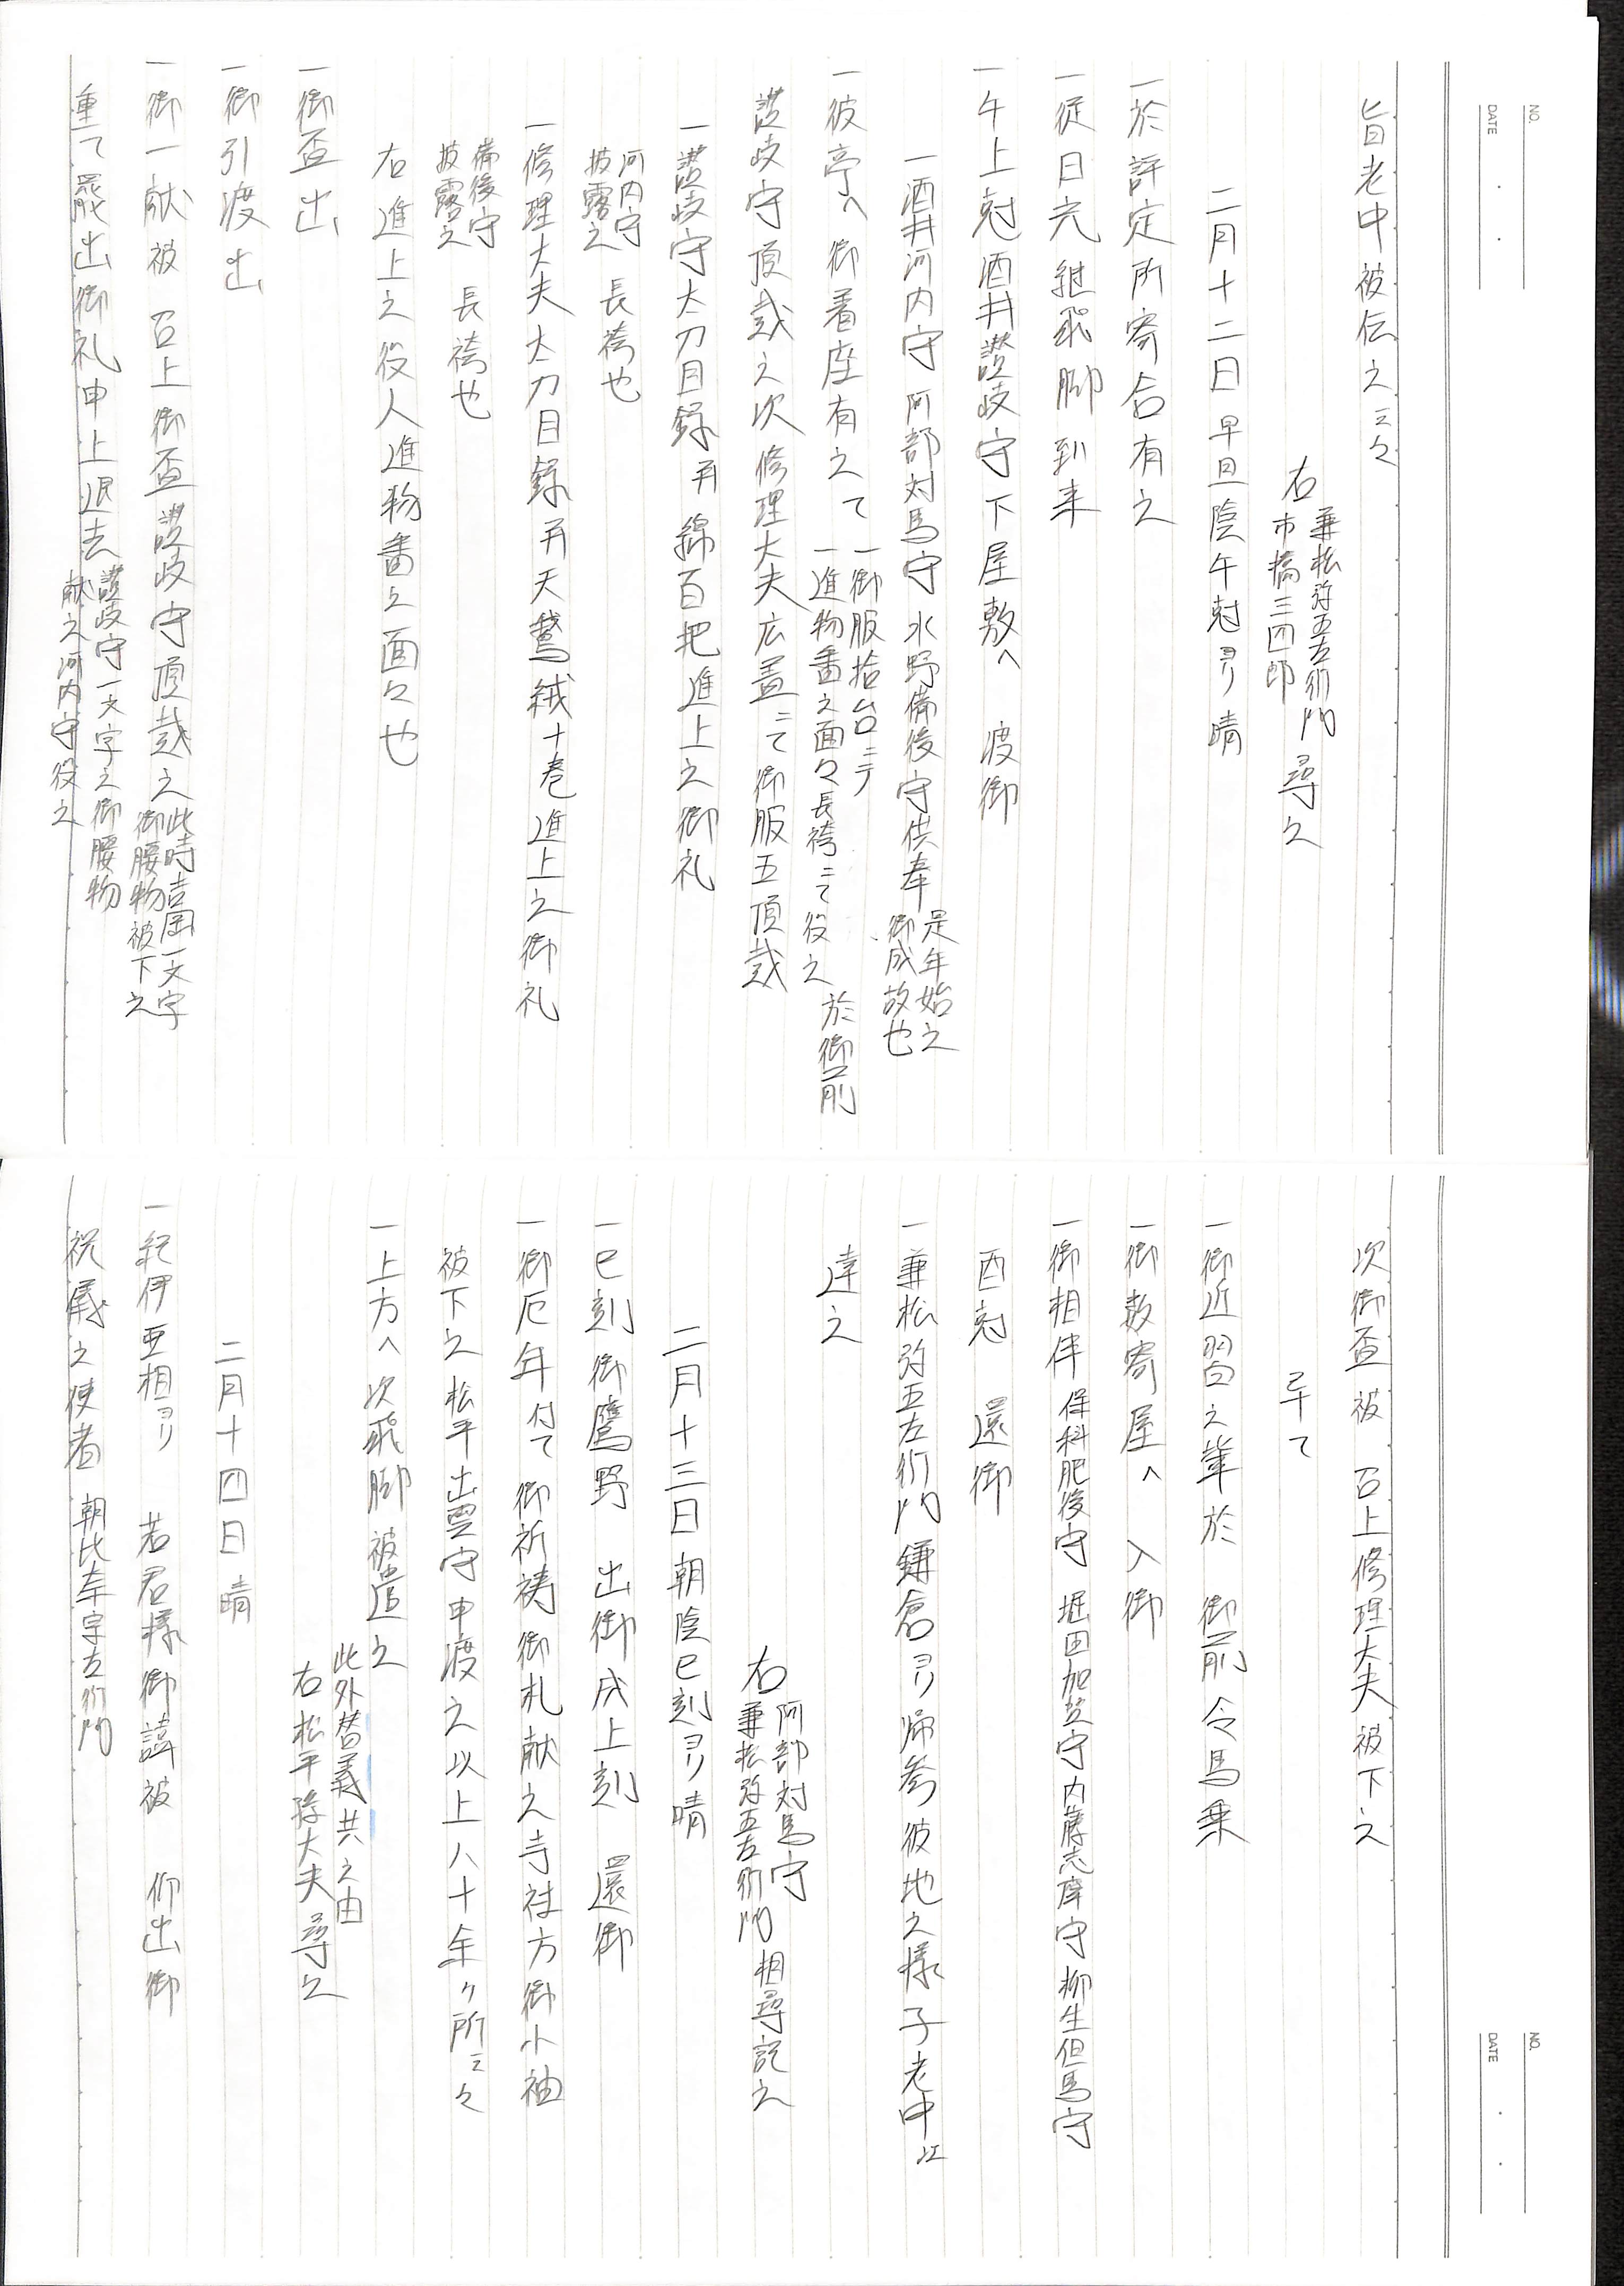 旨老中被伝之云々
右 兼松弥五左衛門
市橋三四郎 尋之
二月十二日 早旦陰午尅ヨリ晴
一於評定所寄合有之
一従日光継飛脚到来
一午上尅酒井讃岐守下屋敷へ 渡御
一酒井河内守 阿部対馬守 水野備後守供奉 是年始之
御成故也
一彼亭へ 御着座有之て 一御服拾台ニテ
一進物番之面々長袴ニて役之 於御前
讃岐守頂戴之次修理大夫広蓋ニて御服五頂戴
一讃岐守太刀目録并綿百把進上之御礼
河内守
披露之 長袴也
一修理大夫太刀目録并天鵞絨十巻進上之御礼
備後守
披露之 長袴也
右進上之役人進物番之面々也
一御盃出
一御引渡出
一御一献被 召上御盃讃岐守頂戴之 此時吉岡一文字
御腰物被下之
重て罷出御礼申上退去 讃岐守一文字之御腰物
献之河内守役之
次御盃被 召上修理大夫被下之
畢て
一御近習之輩於 御前令馬乗
一御数寄屋へ 入御
一御相伴 保科肥後守 堀田加賀守 内藤志摩守 柳生但馬守
酉尅 還御
一兼松弥五左衛門鎌倉ヨリ帰参彼地之様子老中江
達之
右 阿部対馬守
兼松弥五左衛門 相尋記之
二月十三日 朝陰巳刻ヨリ晴
一巳刻御鷹野 出御戌上刻 還御
一御厄年付て御祈祷御札献之寺社方御小袖
被下之松平出雲守申渡之以上八十余ヶ所云々
一上方へ次飛脚被遣之
此外替義共之由
右松平孫大夫尋之
二月十四日 晴
一紀伊亜相ヨリ 若君様御諱被 仰出御
祝儀之使者 朝比奈宇左衛門